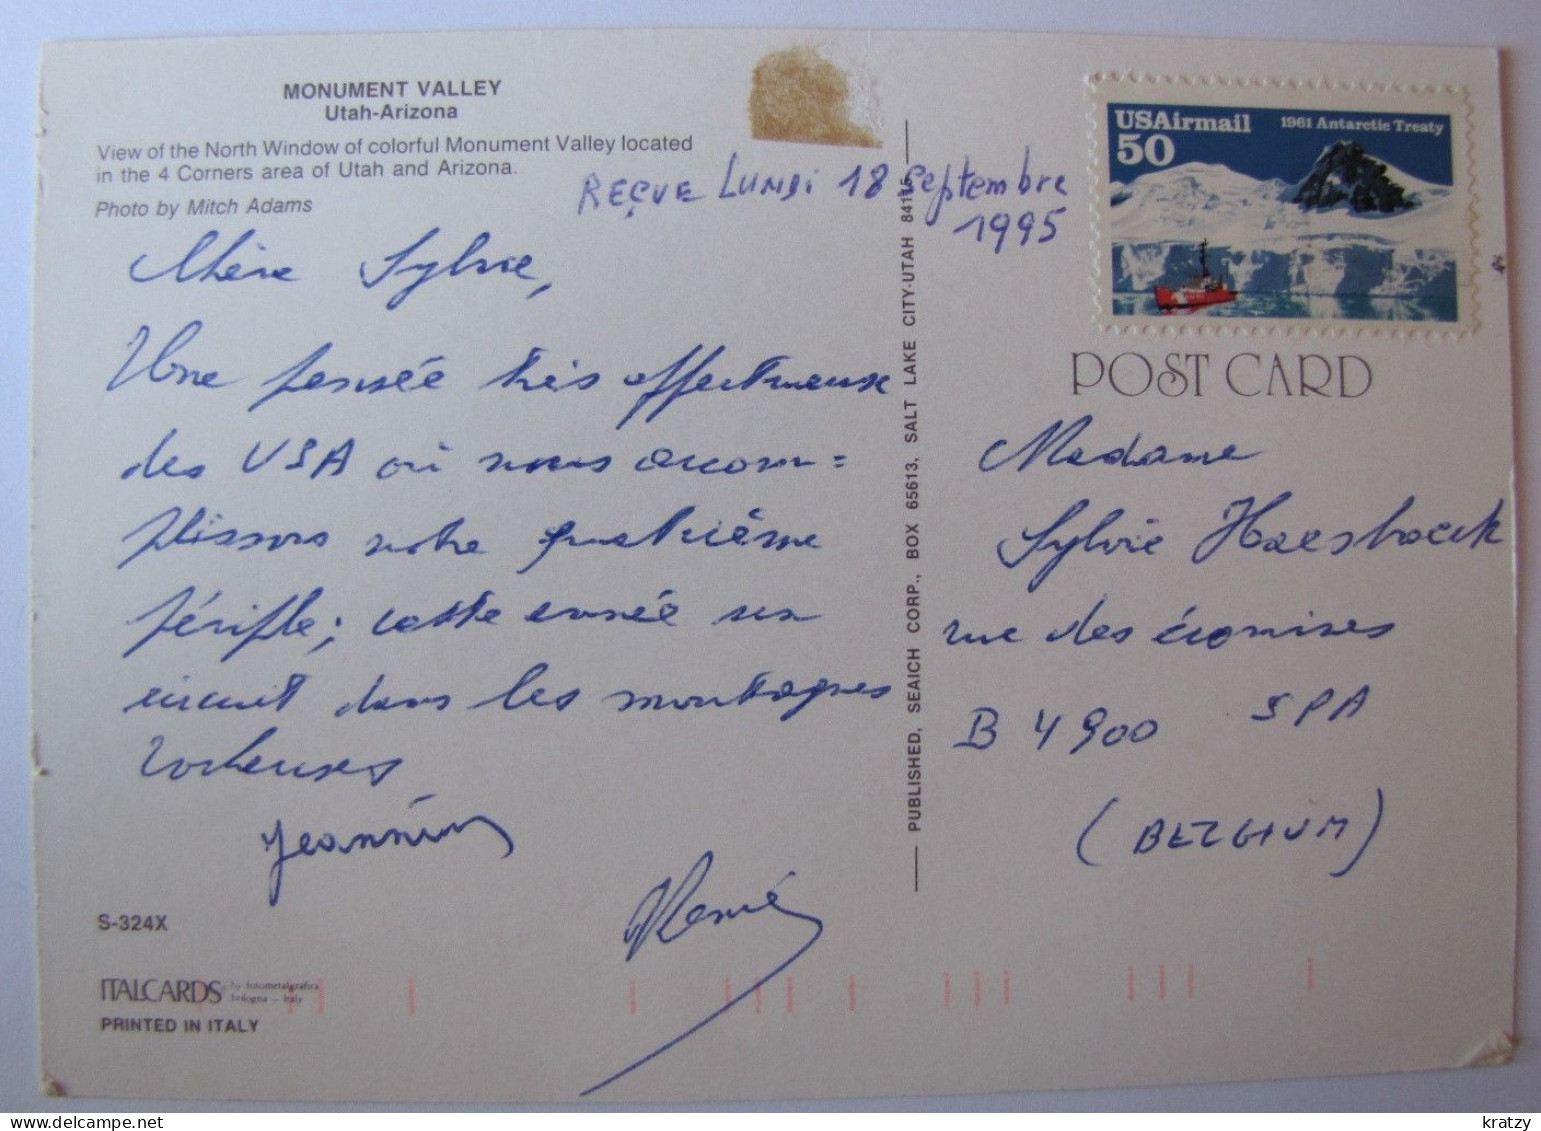 MONUMENT VALLEY
Utah-Arizona
View of the North Window of colorful Monument Valley located
in the 4 Corners area of Utah and Arizona.
Photo by Mitch Adams
REÇUE LUNDI 18 septembre
1995
Chère Sylvie,
Une pensée très affectueuse
des USA où nous accom=
plissons notre quatrième
périple; cette année un
circuit dans les montagnes
rocheuses
Jeannine
René
S-324X
ITALCARDS by fotometalgrafica
bologna - Italy
PRINTED IN ITALY
PUBLISHED, SEAICH CORP., BOX 65613, SALT LAKE CITY-UTAH 84115
USAirmail 1961 Antarctic Treaty
50
POST CARD
Madame
Sylvie
rue des
B 4900 SPA
(BELGIUM)
kratzy